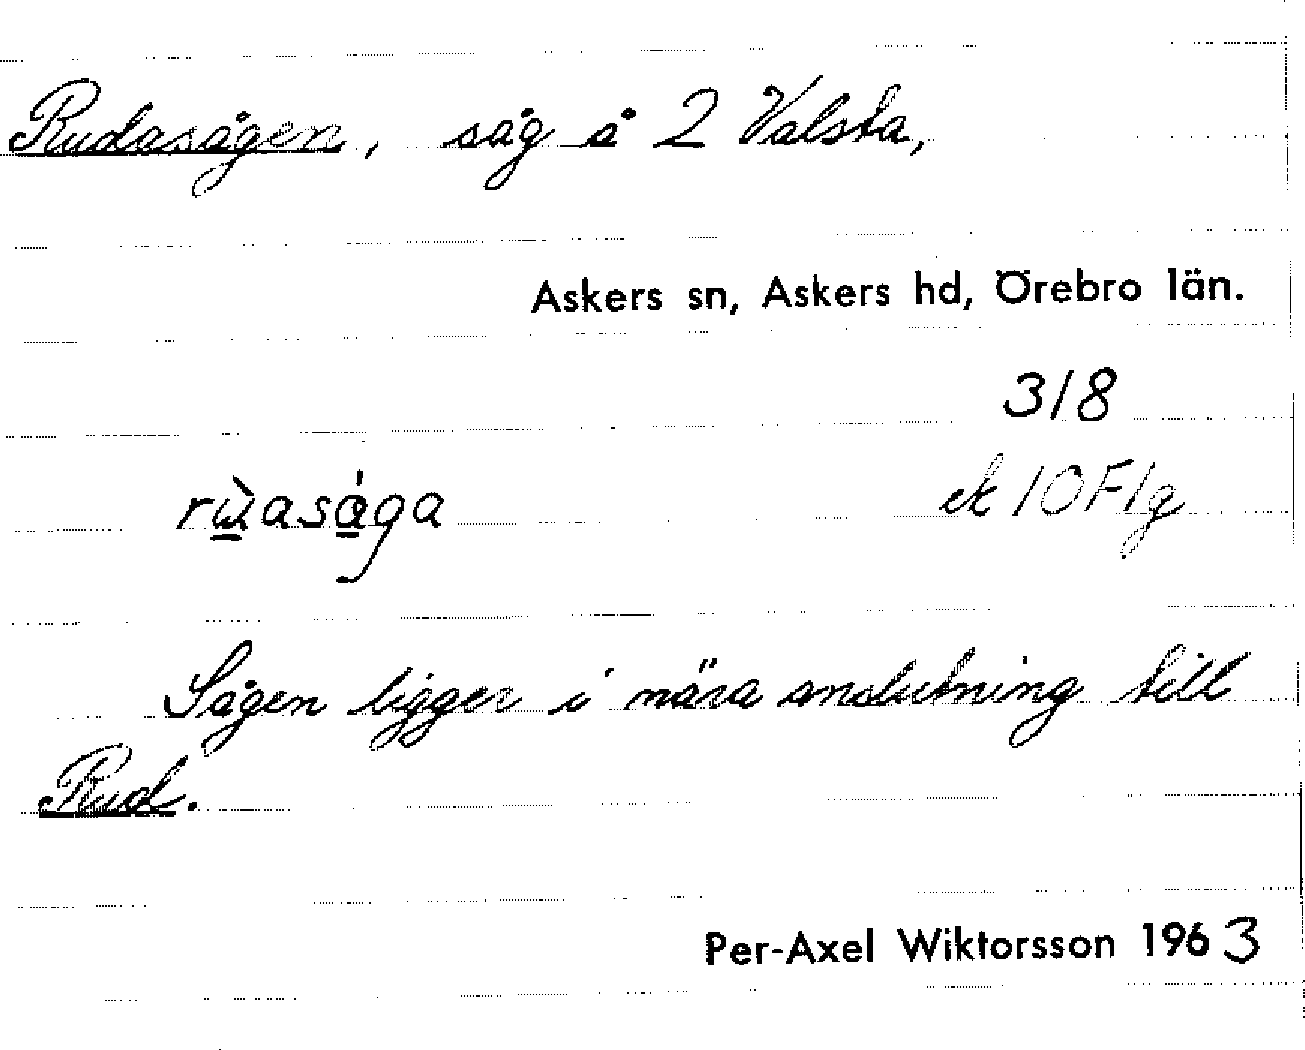 Rudasågen, såg å 2 Valsta,
Askers sn, Askers hd, Örebro län.
318
ek 10F1g
rùasága
Sågen ligger i nära anslutning till
Rud.
Per-Axel Wiktorsson 1963